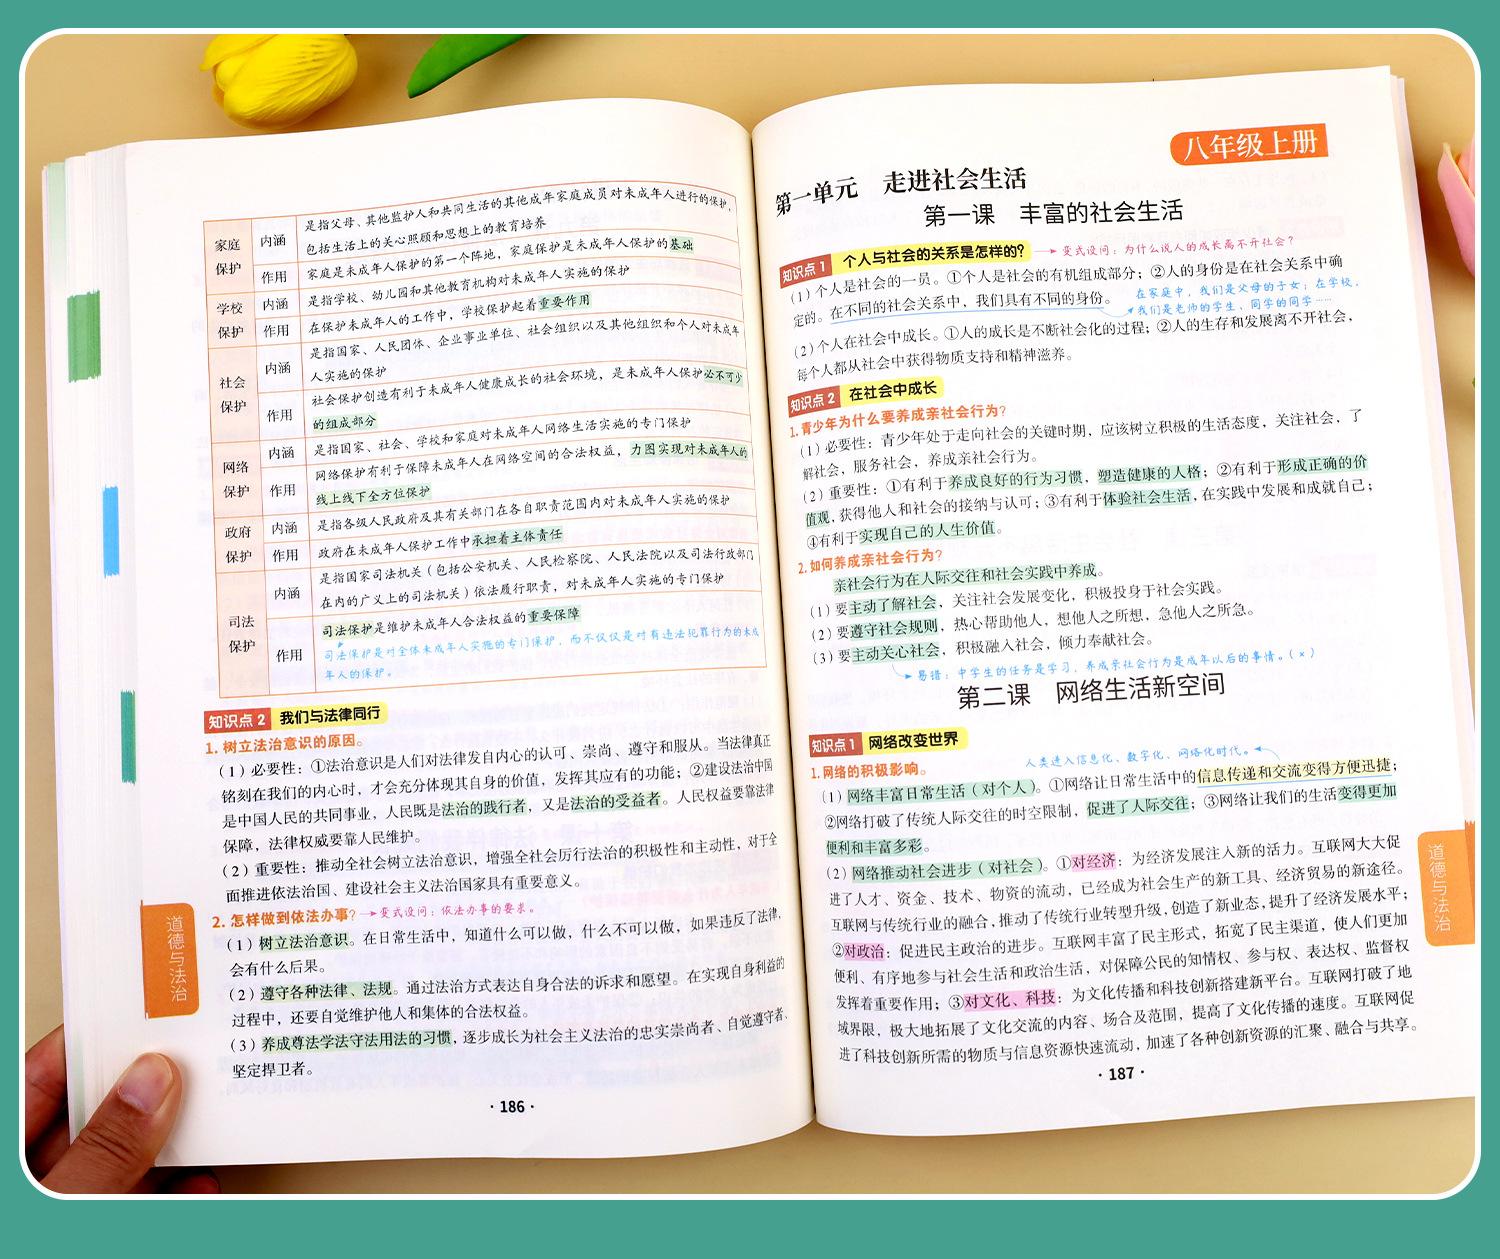 家庭保护
内涵
是指父母、其他监护人和共同生活的其他成年家庭成员对未成年人进行的保护,
包括生活上的关心照顾和思想上的教育培养
作用
家庭是未成年人保护的第一个阵地,家庭保护是未成年人保护的基础
学校保护
内涵
是指学校、幼儿园和其他教育机构对未成年人实施的保护
作用
在保护未成年人的工作中,学校保护起着重要作用
社会保护
内涵
是指国家、人民团体、企业事业单位、社会组织以及其他组织和个人对未成年
人实施的保护
作用
社会保护创造有利于未成年人健康成长的社会环境,是未成年人保护必不可少
的组成部分
网络保护
内涵
是指国家、社会、学校和家庭对未成年人网络生活实施的专门保护
作用
网络保护有利于保障未成年人在网络空间的合法权益,力图实现对未成年人的
线上线下全方位保护
政府保护
内涵
是指各级人民政府及其有关部门在各自职责范围内对未成年人实施的保护
作用
政府在未成年人保护工作中承担着主体责任
司法保护
内涵
是指国家司法机关(包括公安机关、人民检察院、人民法院以及司法行政部门
在内的广义上的司法机关)依法履行职责,对未成年人实施的专门保护
作用
司法保护是维护未成年人合法权益的重要保障
司法保护是对全体未成年人实施的专门保护,而不仅仅是对有违法犯罪行为的未成
年人的保护。
知识点2 我们与法律同行
1. 树立法治意识的原因。
(1)必要性:①法治意识是人们对法律发自内心的认可、崇尚、遵守和服从。当法律真正
铭刻在我们的内心时,才会充分体现其自身的价值,发挥其应有的功能;②建设法治中国
是中国人民的共同事业,人民既是法治的践行者,又是法治的受益者。人民权益要靠法律
保障,法律权威要靠人民维护。
(2)重要性:推动全社会树立法治意识,增强全社会厉行法治的积极性和主动性,对于全
面推进依法治国、建设社会主义法治国家具有重要意义。
2. 怎样做到依法办事?→变式设问:依法办事的要求。
(1)树立法治意识。在日常生活中,知道什么可以做,什么不可以做,如果违反了法律,
会有什么后果。
(2)遵守各种法律、法规。通过法治方式表达自身合法的诉求和愿望。在实现自身利益的
过程中,还要自觉维护他人和集体的合法权益。
(3)养成尊法学法守法用法的习惯,逐步成长为社会主义法治的忠实崇尚者、自觉遵守者、
坚定捍卫者。
道德与法治
·186·
八年级上册
第一单元 走进社会生活
第一课 丰富的社会生活
知识点1 个人与社会的关系是怎样的?→变式设问:为什么说人的成长离不开社会?
(1)个人是社会的一员。①个人是社会的有机组成部分;②人的身份是在社会关系中确
定的。在不同的社会关系中,我们具有不同的身份。
在家庭中,我们是父母的子女;在学校,
我们是老师的学生、同学的同学……
(2)个人在社会中成长。①人的成长是不断社会化的过程;②人的生存和发展离不开社会,
每个人都从社会中获得物质支持和精神滋养。
知识点2 在社会中成长
1. 青少年为什么要养成亲社会行为?
(1)必要性:青少年处于走向社会的关键时期,应该树立积极的生活态度,关注社会,了
解社会,服务社会,养成亲社会行为。
(2)重要性:①有利于养成良好的行为习惯,塑造健康的人格;②有利于形成正确的价
值观,获得他人和社会的接纳与认可;③有利于体验社会生活,在实践中发展和成就自己;
④有利于实现自己的人生价值。
2. 如何养成亲社会行为?
亲社会行为在人际交往和社会实践中养成。
(1)要主动了解社会,关注社会发展变化,积极投身于社会实践。
(2)要遵守社会规则,热心帮助他人,想他人之所想,急他人之所急。
(3)要主动关心社会,积极融入社会,倾力奉献社会。
易错:中学生的任务是学习,养成亲社会行为是成年以后的事情。(×)
第二课 网络生活新空间
知识点1 网络改变世界
人类进入信息化、数字化、网络化时代。
1. 网络的积极影响。
(1)网络丰富日常生活(对个人)。①网络让日常生活中的信息传递和交流变得方便迅捷;
②网络打破了传统人际交往的时空限制,促进了人际交往;③网络让我们的生活变得更加
便利和丰富多彩。
(2)网络推动社会进步(对社会)。①对经济:为经济发展注入新的活力。互联网大大促
进了人才、资金、技术、物资的流动,已经成为社会生产的新工具、经济贸易的新途径。
互联网与传统行业的融合,推动了传统行业转型升级,创造了新业态,提升了经济发展水平;
②对政治:促进民主政治的进步。互联网丰富了民主形式,拓宽了民主渠道,使人们更加
便利、有序地参与社会生活和政治生活,对保障公民的知情权、参与权、表达权、监督权
发挥着重要作用;③对文化、科技:为文化传播和科技创新搭建新平台。互联网打破了地
域界限,极大地拓展了文化交流的内容、场合及范围,提高了文化传播的速度。互联网促
进了科技创新所需的物质与信息资源快速流动,加速了各种创新资源的汇聚、融合与共享。
道德与法治
·187·